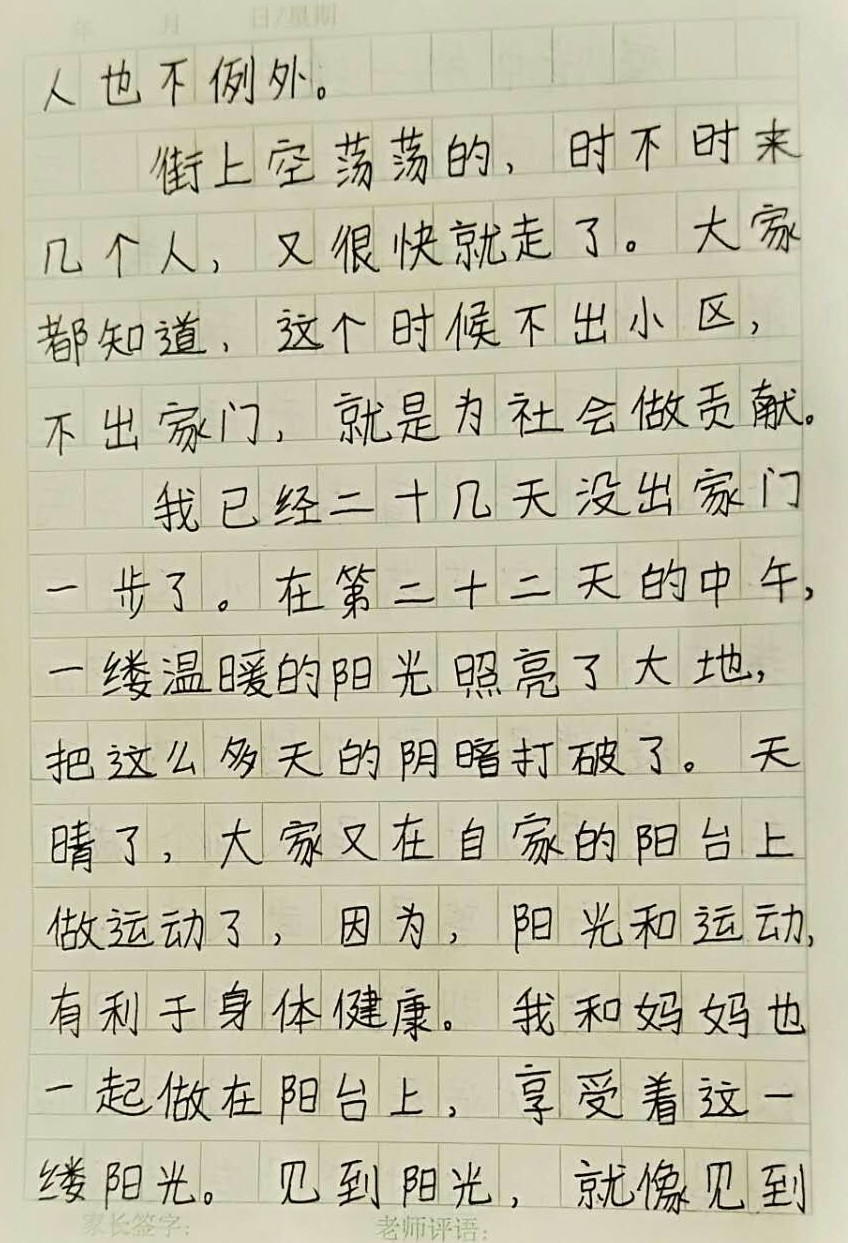 年 月 日/星期
人也不例外。
街上空荡荡的，时不时来
几个人，又很快就走了。大家
都知道，这个时候不出小区，
不出家门，就是为社会做贡献。
我已经二十几天没出家门
一步了。在第二十二天的中午，
一缕温暖的阳光照亮了大地，
把这么多天的阴暗打破了。天
晴了，大家又在自家的阳台上
做运动了，因为，阳光和运动，
有利于身体健康。我和妈妈也
一起做在阳台上，享受着这一
缕阳光。见到阳光，就像见到
家长签字： 老师评语：